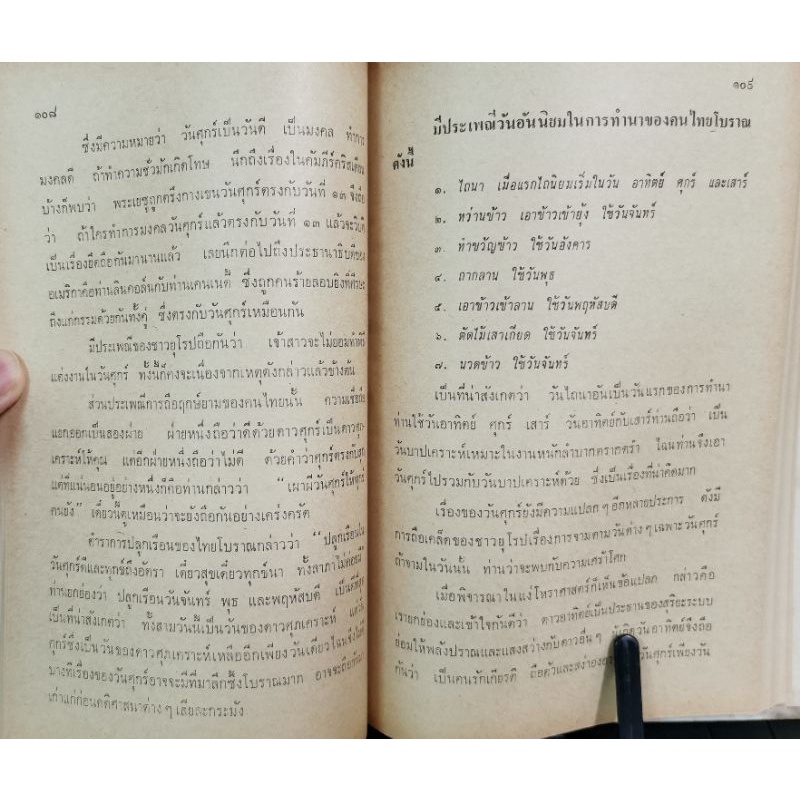 ๑๐๘
ซึ่งมีความหมายว่า วันศุกร์เป็นวันดี เป็นมงคล ทำการ
มงคลดี ถ้าทำความชั่วมักเกิดโทษ นึกถึงเรื่องในคัมภีร์คริสเตียน
บ้างก็พบว่า พระเยซูถูกตรึงกางเขนวันศุกร์ตรงกับวันที่ ๑๓ จึงถือ
ว่า ถ้าใครทำการมงคลวันศุกร์แล้วตรงกับวันที่ ๑๓ แล้วจะวิบัติ
เป็นเรื่องยึดถือกันมานานแล้ว เลยนึกต่อไปถึงประธานาธิบดีของ
อเมริกาคือท่านลินคอล์นกับท่านเคนเนดี้ ซึ่งถูกคนร้ายลอบยิงที่ศีรษะ
ถึงแก่กรรมด้วยกันทั้งคู่ ซึ่งตรงกับวันศุกร์เหมือนกัน
มีประเพณีของชาวยุโรปถือกันว่า เจ้าสาวจะไม่ยอมทำพิธี
แต่งงานในวันศุกร์ ทั้งนี้ก็คงจะเนื่องจากเหตุดังกล่าวแล้วข้างต้น
ส่วนประเพณีการถือฤกษ์ยามของคนไทยนั้น ความเชื่อถือ
แยกออกเป็นสองฝ่าย ฝ่ายหนึ่งถือว่าดีด้วยดาวศุกร์เป็นดาวศุภ-
เคราะห์ให้คุณ แต่อีกฝ่ายหนึ่งถือว่าไม่ดี ด้วยคำว่าศุกร์ตรงกับสุก
แต่ที่แน่นอนอยู่อย่างหนึ่งก็คือท่านกล่าวว่า “เผาผีวันศุกร์ให้ทุกข์
คนยัง” เดี๋ยวนี้ดูเหมือนว่าจะยังถือกันอย่างเคร่งครัด
ตำราการปลูกเรือนของไทยโบราณกล่าวว่า “ปลูกเรือนใน
วันศุกร์ดีและทุกข์ถึงอัตรา เดี๋ยวสุขเดี๋ยวทุกข์นา ทั้งลาภาไม่ค่อยมี”
ท่านยกย่องว่า ปลูกเรือนวันจันทร์ พุธ และพฤหัสบดี เป็นดีที่สุด
เป็นที่น่าสังเกตว่า ทั้งสามวันนี้เป็นวันของดาวศุภเคราะห์ แต่วัน
ศุกร์ซึ่งเป็นวันของดาวศุภเคราะห์เหลืออีกเพียงวันเดียวไฉนจึงไม่ดี
บางทีเรื่องของวันศุกร์อาจจะมีที่มาลึกซึ้งโบราณมาก อาจจะถือกันมา
เก่าแก่ก่อนคติศาสนาต่าง ๆ เสียละกระมัง
๑๐๙
มีประเพณีวันอันนิยมในการทำนาของคนไทยโบราณ
ดังนี้
๑. ไถนา เมื่อแรกไถนิยมเริ่มในวัน อาทิตย์ ศุกร์ และเสาร์
๒. หว่านข้าว เอาข้าวเข้ายุ้ง ใช้วันจันทร์
๓. ทำขวัญข้าว ใช้วันอังคาร
๔. ถากลาน ใช้วันพุธ
๕. เอาข้าวเข้าลาน ใช้วันพฤหัสบดี
๖. ตัดไม้เสาเกียด ใช้วันจันทร์
๗. นวดข้าว ใช้วันจันทร์
เป็นที่น่าสังเกตว่า วันไถนาอันเป็นวันแรกของการทำนา
ท่านใช้วันอาทิตย์ ศุกร์ เสาร์ วันอาทิตย์กับเสาร์ท่านถือว่า เป็น
วันบาปเคราะห์เหมาะในงานหนักลำบากตรากตรำ ไฉนท่านจึงเอา
วันศุกร์ไปรวมกับวันบาปเคราะห์ด้วย ซึ่งเป็นเรื่องที่น่าคิดมาก
เรื่องของวันศุกร์ยังมีความแปลก ๆ อีกหลายประการ ดังมี
การถือเคล็ดของชาวยุโรปเรื่องการจามตามวันต่าง ๆ เฉพาะวันศุกร์
ถ้าจามในวันนั้น ท่านว่าจะพบกับความเศร้าโศก
เมื่อพิจารณาในแง่โหราศาสตร์ก็เห็นข้อแปลก กล่าวคือ
เรายกย่องและเข้าใจกันดีว่า ดาวอาทิตย์เป็นประธานของสุริยะระบบ
ย่อมให้พลังปราณและแสงสว่างกับดาวอื่น ๆ ผู้เกิดวันอาทิตย์จึงถือ
กันว่า เป็นคนรักเกียรติ ถือตัวและสง่า วันศุกร์เพียงวัน